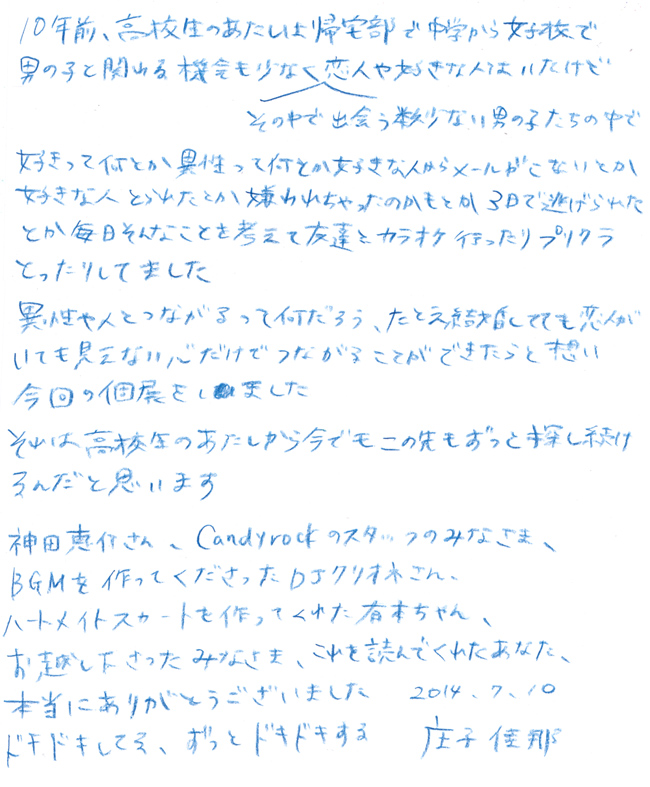 10年前、高校生のあたしは帰宅部で中学から女子校で
男の子と関われる機会も少なく恋人や好きな人はいたけど
その中で出会う数少ない男の子たちの中で
好きって何とか異性って何とか好きな人からメールがこないとか
好きな人とられたとか嫌われちゃったのかもとか3日で逃げられた
とか毎日そんなことを考えて友達とカラオケ行ったりプリクラ
とったりしてました
異性や人とつながるって何だろう、たとえ結婚してても恋人が
いても見えない心だけでつながることができたらと想い
今回の個展をしました
それは高校生のあたしから今でもこの先もずっと探し続け
るんだと思います
神田恵介さん、Candyrockのスタッフのみなさま、
BGMを作ってくださったDJクリオネさん、
ハートメイトスカートを作ってくれた有本ちゃん、
お越し下さったみなさま、これを読んでくれたあなた、
本当にありがとうございました 2014.7.10
ドキドキしてそ、ずっとドキドキする 庄子佳那